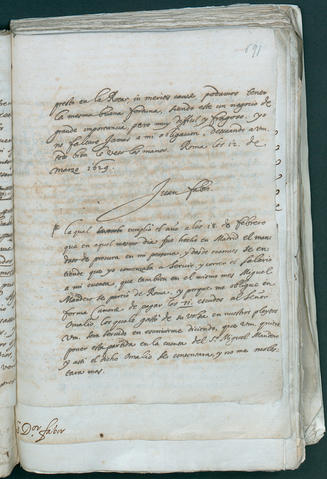 691
presto en la Rota, in meritis causæ, podamos tener
la mesma buena fortuna, siendo este un negocio de
grande importancia, pero muy difficil y fragoso. yo
no faltaré jamas a mi obligacion, desseando a Vm.
todo bien le beso las manos. Roma los 12. de
Marzo 1629.
Juan Fabro.
la qual cumplió el año a los 18 de febrero
que en aquel mismo dia fue hecho en Madrid el man
dato de procura en mi persona, y desde entonces se en
tiende que yo començaba a servir, y corre el salario
a mi cuenta, que tambien en el mismo mes Miguel
Mandeur se partio de Roma, y porque me obligué en
forma camera de pagar los 11. escudos al Señor
Omalio los quales gastó de su bolsa en nuestros pleytos
Vm. sea servido en escrivirme diziendo, que Vm. quiere
poner esta partida en la cuenta del Sr. Miguel Mandeur
y assi el dicho Omalio se contentara, y no me moles
tara mas.
Dor. fabro